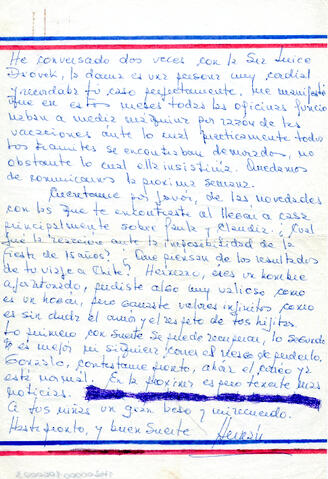 He conversado dos veces con la Sra
la dama es una persona muy cordial
y recordaba tú caso perfectamente. Me manifestó
que en estos meses todas las oficinas funcio
naban a media máquina por razón de las
vacaciones ante lo cual prácticamente todos
los trámites se encontraban demorados, no
obstante lo cual ella insistiría. Quedamos
de comunicarnos la próxima semana.
Cuéntame por favor, de las novedades
con las que te encontraste al llegar a casa
principalmente sobre Paula y Claudia. ¿Cuál
fué la reacción ante la imposibilidad de la
fiesta de 15 años? ¿Que piensan de los resultados
de tu viaje a Chile? Hermano, eres un hombre
afortunado, perdiste algo muy valioso como
es un hogar, pero ganaste valores infinitos como
es sin duda el amor y el respeto de tus hijitas.
Lo primero con suerte se puede recuperar, lo segundo
es mejor ni siquiera correr el riesgo de perderlo.
Gonzalo, contéstame pronto, ahora el correo ya
está normal. En la próxima espero tenerte más
noticias.
A tus niñas un gran beso y mi recuerdo.
Hasta pronto, y buena suerte